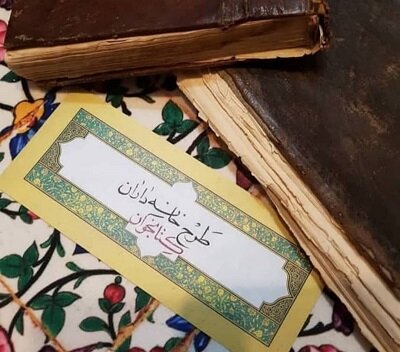 طرح خانه داران
کتابخوان